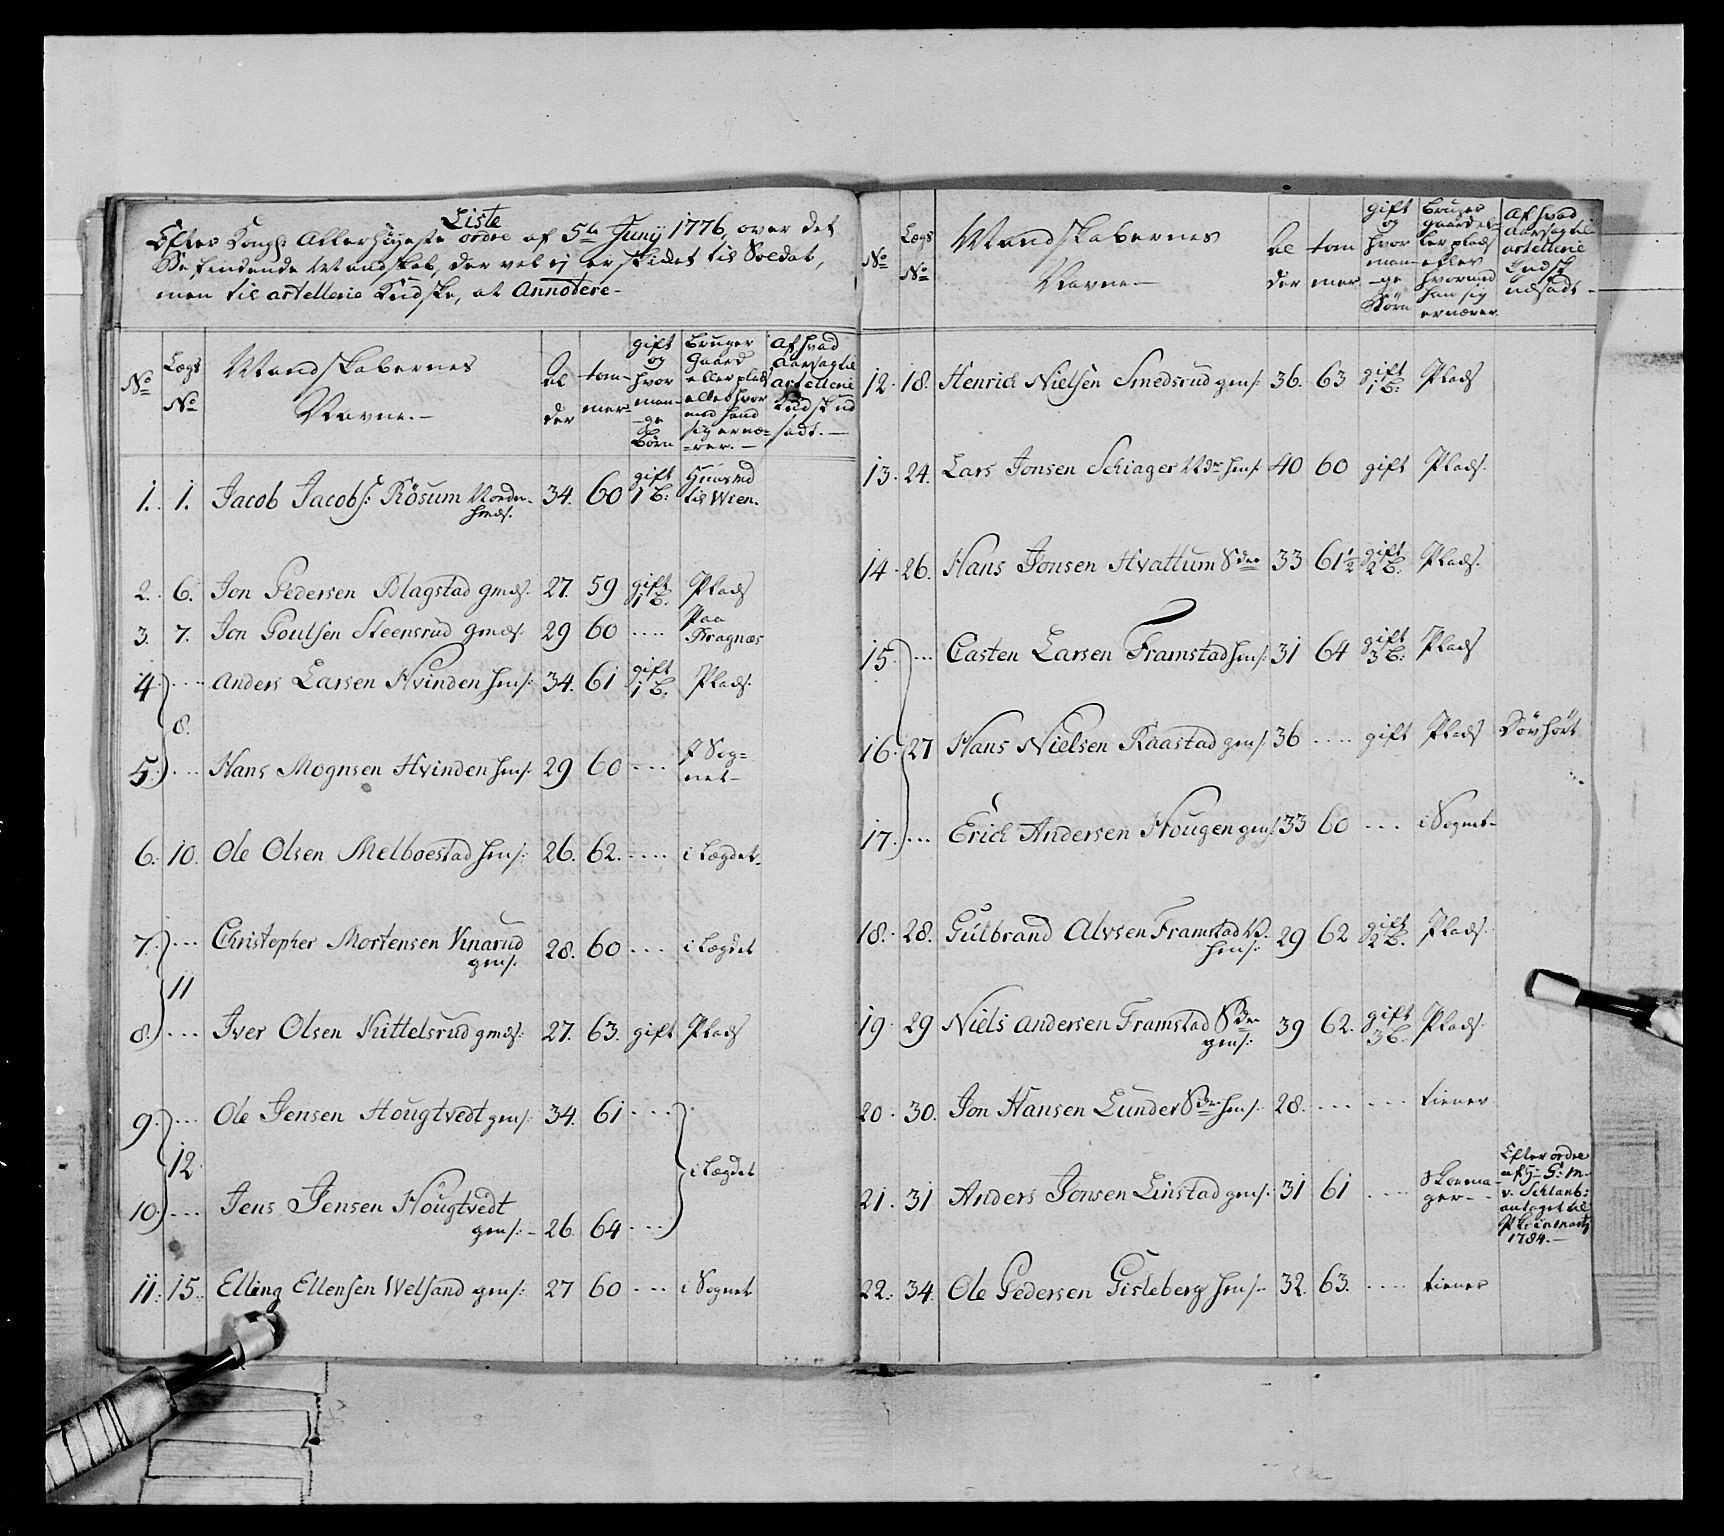 Liste
Efter Kongl: Allerhÿgeste ordre af 5te Junij 1776, over det
Befindende Mandskab, der vel ej er skikket til Soldat,
men til artellerie Kudske, at Annotere-
No
Lægs No
Mandskabernes Navne.-
al der
tom mer
gift og hvor man-ge Börn
Bruger Gaard eller plads eller hvor med hand sig ernæ-rer.-
Af hvad Aarsag til artellerie Kudsk ud sadt.-
1. 1. Jacob Jacobs: Rösum Norder- hmds. 34. 60 gift 1 B: til Wien.
2. 6. Jon Pedersen Blagstad gmds. 27. 59 gift 1 B. Plads
3. 7. Jon Poulsen Steensrud gmds. 29 60 .... Paa Kragnæs
4 .... Anders Larsen Hvinden hms: 34. 61 gift 1 B. Plads.
8.
5. .... Hans Mognsen Hvinden hms. 29 60 .... I Sog= net-
6. 10. Ole Olsen Melboestad hms: 26. 62. .... i Lægdet-
7. ... Christopher Mortensen Kinarud gms. 28. 60 .... i Lægdet
11
8. ... Iver Olsen Kittelsrud gmds: 27. 63. gift Plads
9. ... Ole Jensen Hougtvedt gms: 34. 61 ....
12 i Lægdet
10. ... Jens Jensen Hougtvedt gms:- 26 64 ....
11. 15. Elling Ellensen Welsand gms: 27 60 .... i Sognet
No
Lægs No
Mandskabernes Navne.-
al der
tom mer
gift og hvor man-ge Börn
Bruger gaard el- ler plads eller hvormed han sig ernærer.
Af hvad Aarsag til artellerie Kudsk udsadt-
12. 18. Henrick Nielsen Smedsrud gms: 36. 63 gift 1 B: Plads
13. 24. Lars Jonsen Schiager Ndr hms: 40 60 gift Plads.
14. 26. Hans Jonsen Hvattum Sdre 33 61 1/2 gift 2 B. Plads.
15. ... Casten Larsen Framstad hms: 31 64 gift 3 B: Plads
16. 27 Hans Nielsen Raastad gms: 36 .... gift Plads Dövhört
17. ... Erick Andersen Hougen gms: 33 60 ... i Sognet-
18. 28. Gulbrand Alvsen Framstad N. hms: 29 62 gift 2 B. Plads.
19. 29 Niels Andersen Framstad Sdre gms: 39 62. gift 3 B. Plads.
20. 30. Jon Hansen Lunder Sdre hms. 28. .... .... tiener
21. 31 Anders Jonsen Linstad gms. 31 61 .... Skoema- ger- Efter ordre af H: G: M- v. Schlanb: antaget til 1784.-
22. 34. Ole Pedersen Gisleberg hms- 32. 63. .... tiener